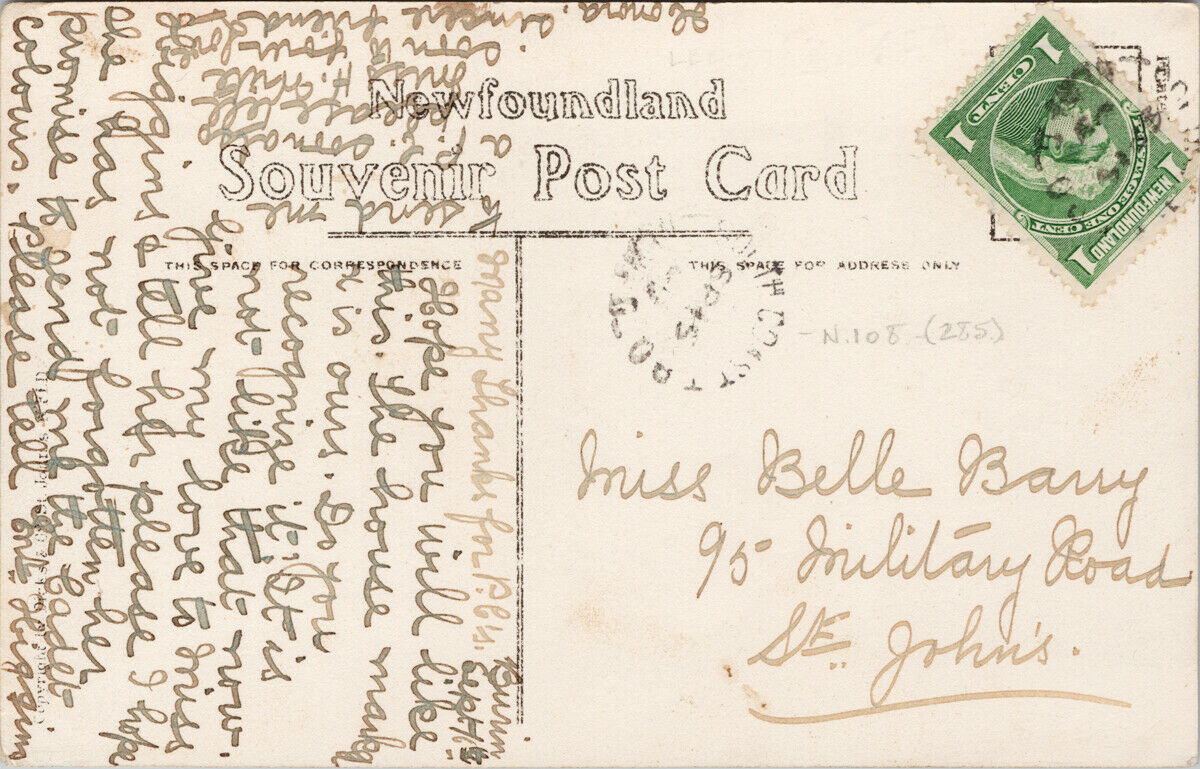 Newfoundland
Souvenir Post Card
THIS SPACE FOR CORRESPONDENCE
THIS SPACE FOR ADDRESS ONLY
1
ONE CENT
1
NEWFOUNDLAND
1
SOUTH COAST
T.P.O.
SP
N.108-(285)
Miss Belle Barry
95 Military Road
St. John's.
Burin
Sept
Many thanks for P.C's.
Hope you will like
this. The house marked
x is ours. Do you
recognize it. It is
not like that now.
Give my love to Miss
Higgins & tell her please I hope
she has not forgotten her
promise to send me the Cadet
colours. Please tell
to send me
a
soon
with
love
your
sincere friend
Honora.